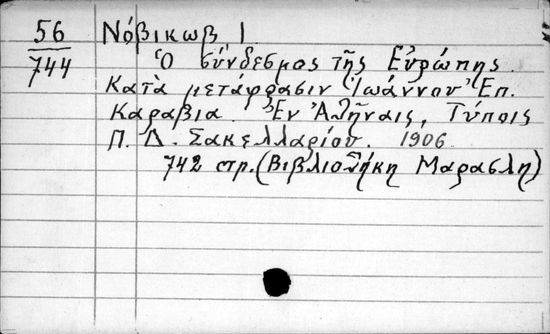 56 Νόβικωβ Ι
744 Ὁ σύνδεσμος τῆς Εὐρώπης.
Κατὰ μετάφρασιν Ἰωάννου Ἐπ.
Καραβία. Ἐν Ἀθῆναις, Τύποις
Π. Δ. Σακελλαρίου. 1906
742 стр. (Βιβλιοθήκη Μαρασλῆ)